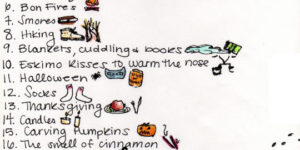 6. Bon Fires
7. Smores
8. Hiking
9. Blankets, cuddling & books
10. Eskimo Kisses to warm the nose
11. Halloween
12. Socks
13. Thanksgiving
14. Candles
15. Carving Pumpkins
16. The smell of cinnamon